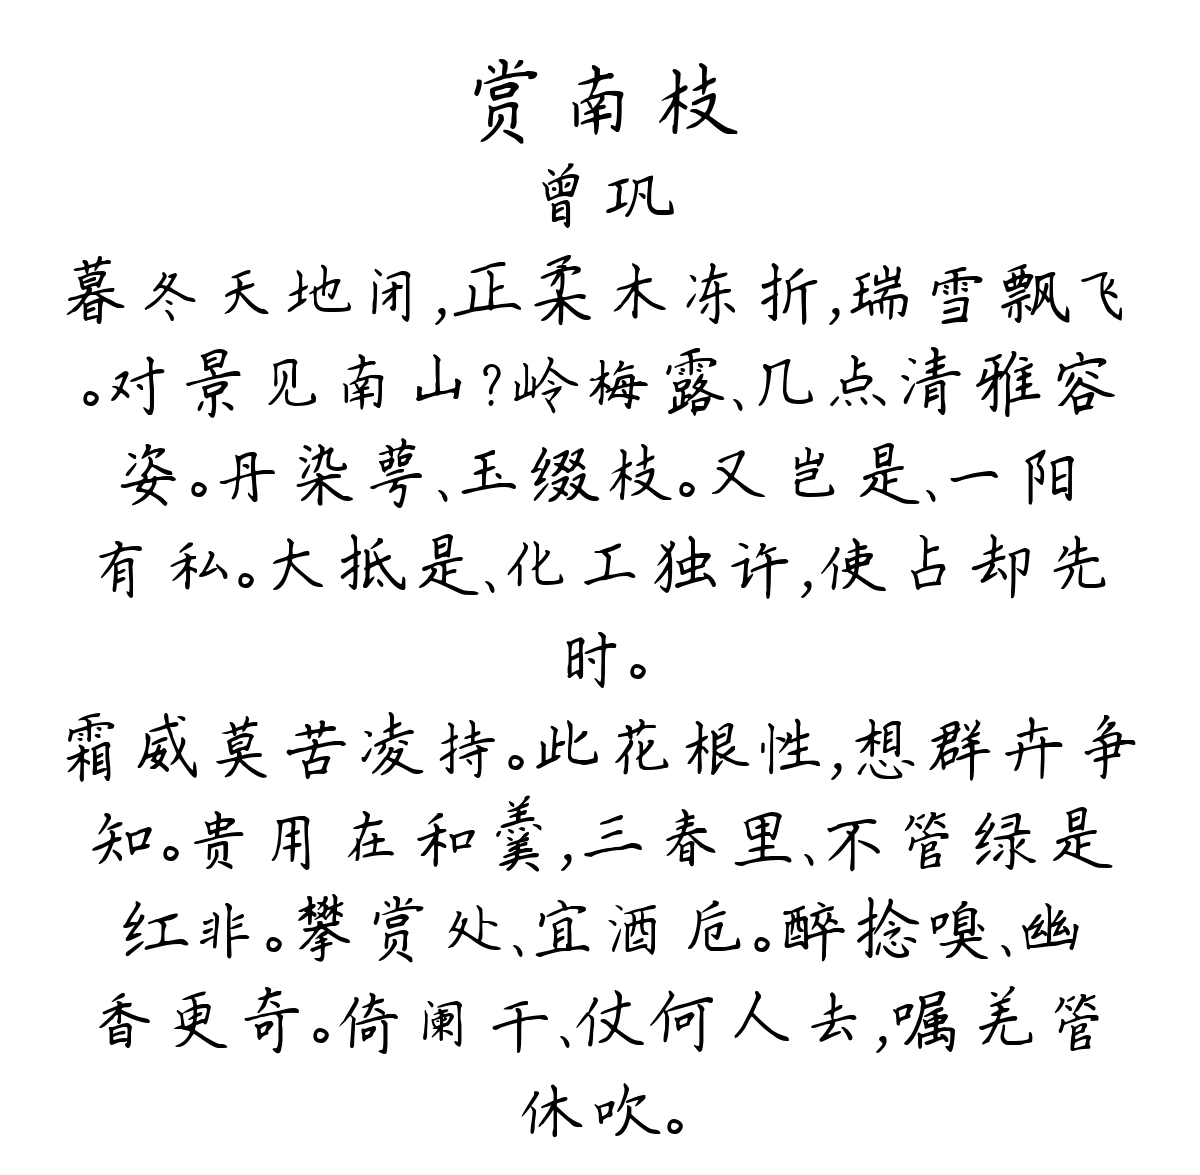 赏南枝
曾巩
暮冬天地闭,正柔木冻折,瑞雪飘飞
。对景见南山?岭梅露、几点清雅容
姿。丹染萼、玉缀枝。又岂是、一阳
有私。大抵是、化工独许,使占却先
时。
霜威莫苦凌持。此花根性,想群卉争
知。贵用在和羹,三春里、不管绿是
红非。攀赏处、宜酒卮。醉捻嗅、幽
香更奇。倚阑干、仗何人去,嘱羌管
休吹。